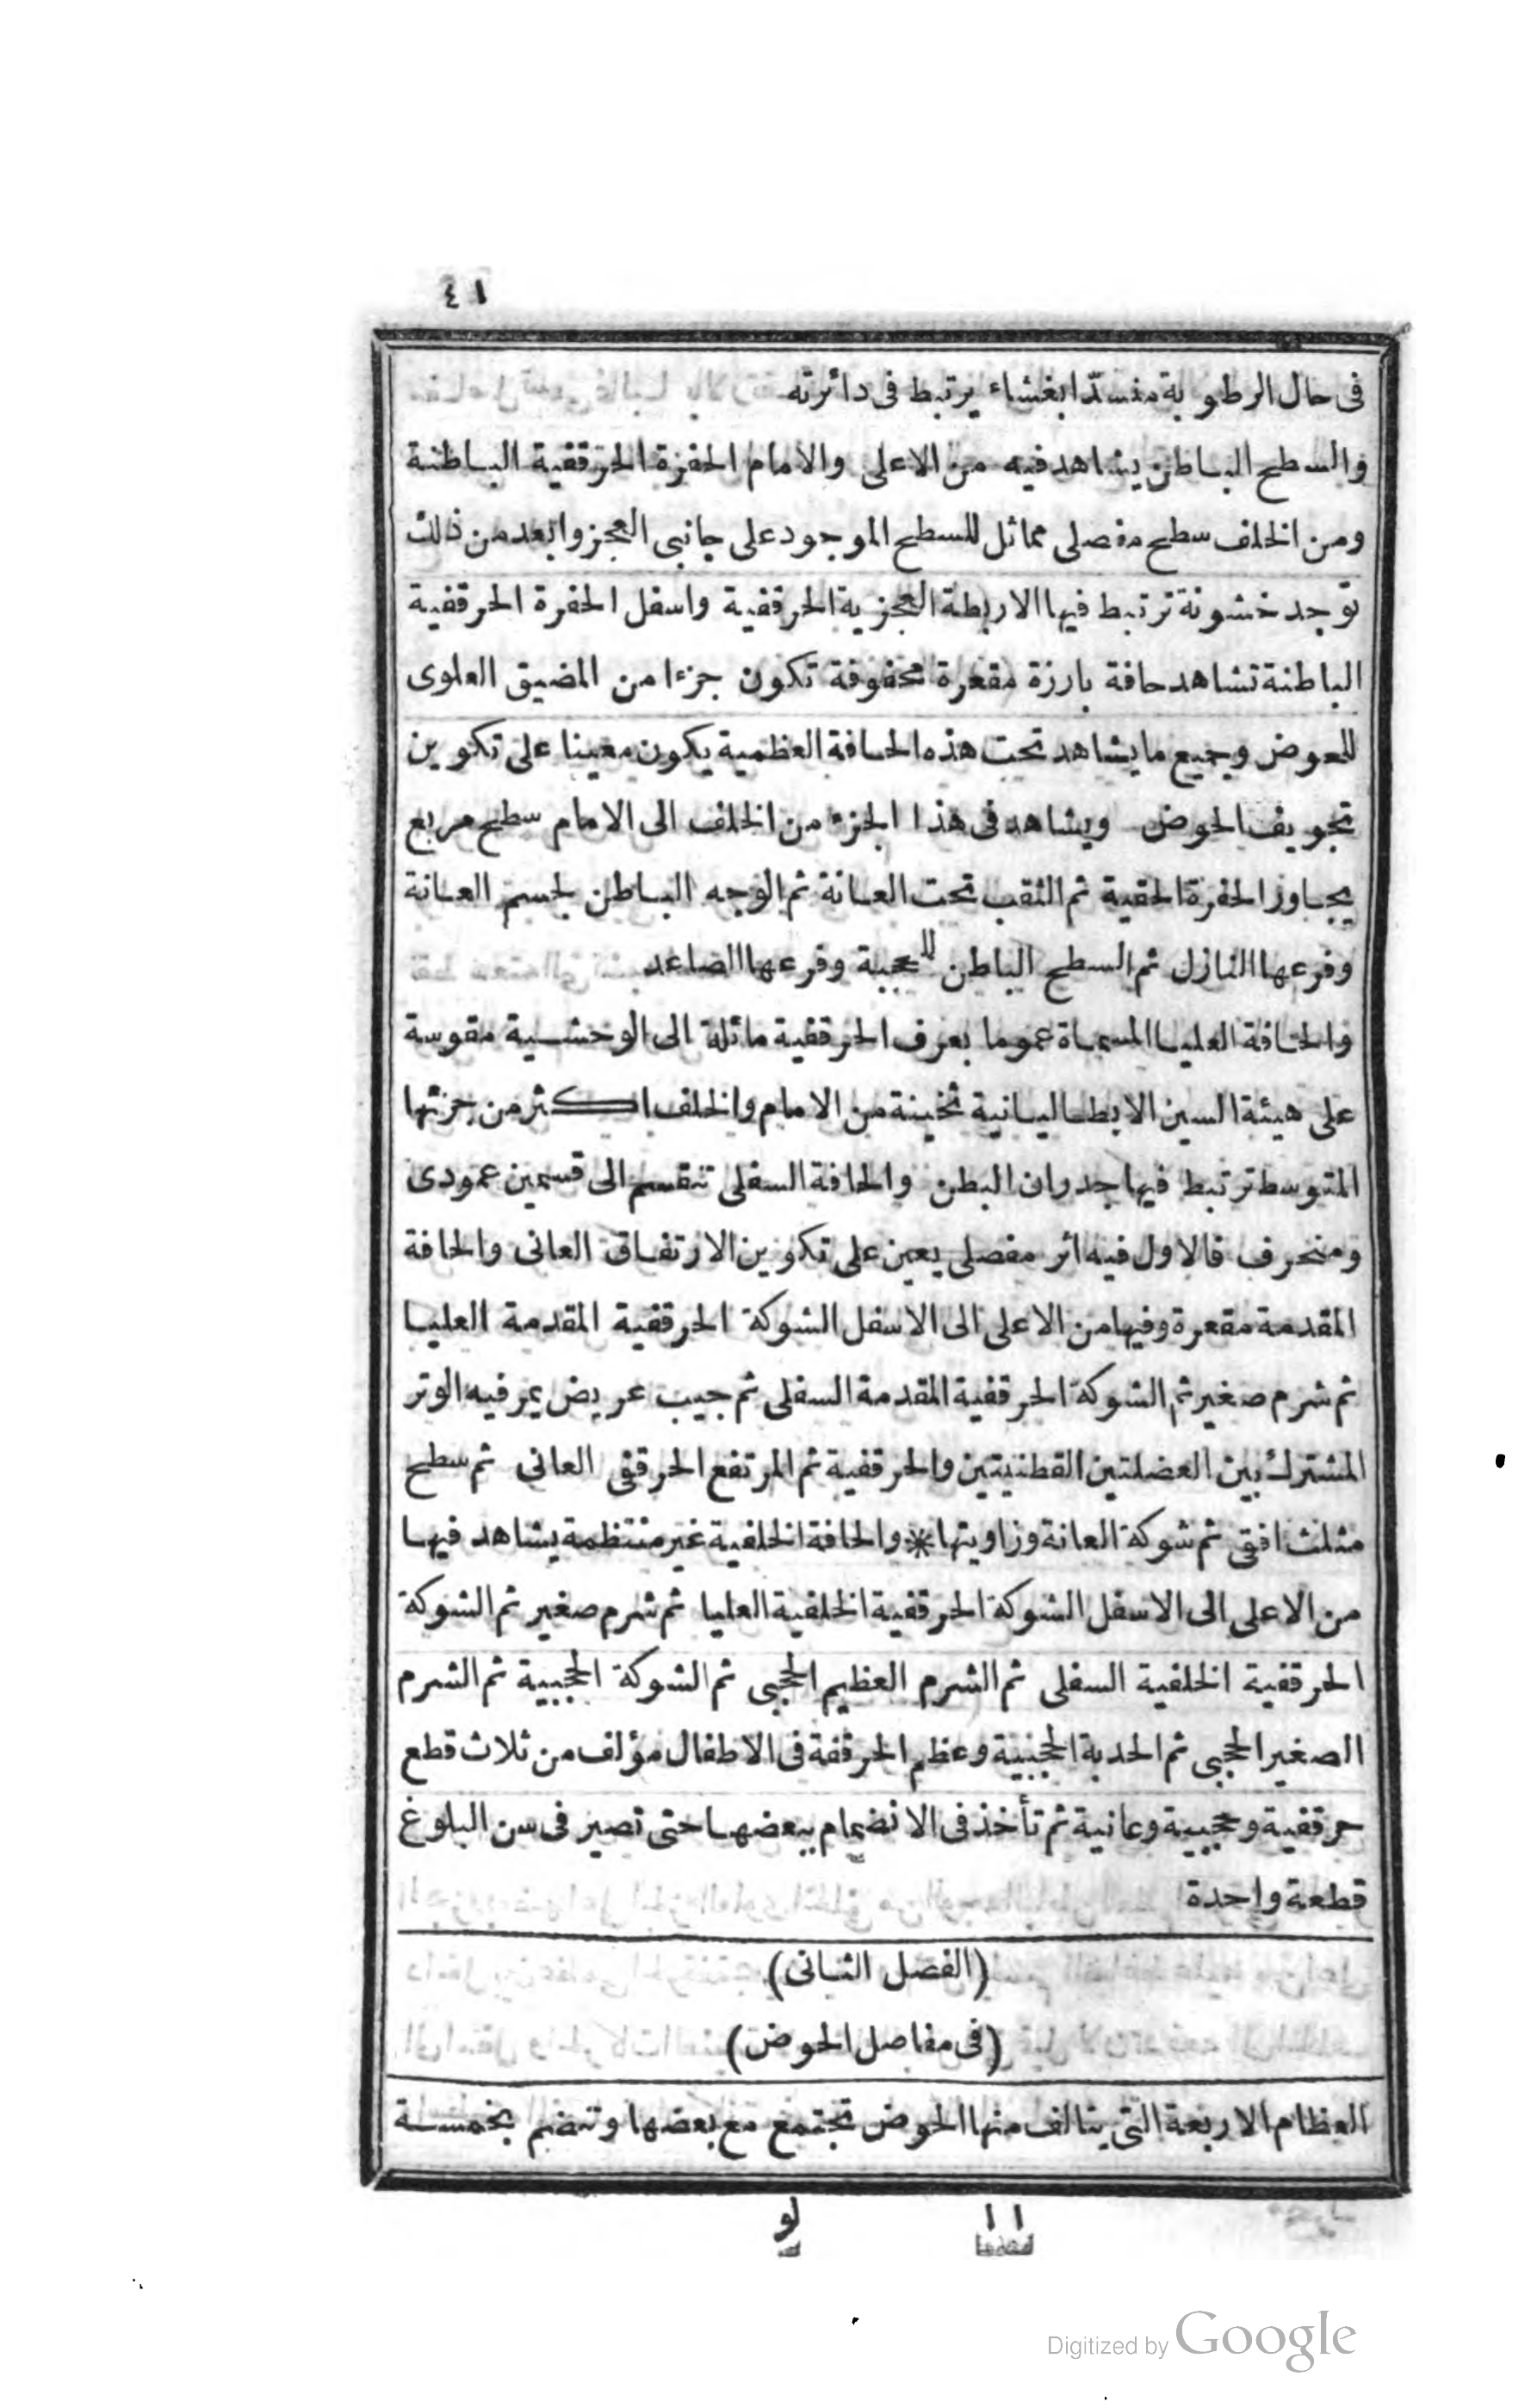 ٤١
فى حال الرطوبة منسدّا بغشاء يرتبط فى دائرته
والسطح الباطن يشاهد فيه من الاعلى والامام الحفرة الحرقفية الباطنة
ومن الخلف سطح مفصلى مماثل للسطح الموجود على جانبى العجز وابعد من ذلك
توجد خشونة ترتبط فيها الاربطة العجزية الحرقفية واسفل الحفرة الحرقفية
الباطنة تشاهد حافة بارزة مقعرة محفوفة تكون جزءا من المضيق العلوى
للحوض وجميع ما يشاهد تحت هذه الحافة العظمية يكون معينا على تكوين
تجويف الحوض ويشاهد فى هذا الجزء من الخلف الى الامام سطح مربع
يجاور الحفرة الحقية ثم الثقب تحت العانة ثم الوجه الباطن لجسم العانة
وفرعها النازل ثم السطح الباطن للحجبة وفرعها الصاعد
والحافة العليا المسماة عموما بعرف الحرقفية مائلة الى الوحشية مقوسة
على هيئة السين الايطاليانية ثخينة من الامام والخلف اكثر من جزئها
المتوسط ترتبط فيها جدران البطن والحافة السفلى تنقسم الى قسمين عمودى
ومنحرف فالاول فيه اثر مفصلى يعين على تكوين الارتفاق العانى والحافة
المقدمة مقعرة وفيها من الاعلى الى الاسفل الشوكة الحرقفية المقدمة العليا
ثم شرم صغير ثم الشوكة الحرقفية المقدمة السفلى ثم جيب عريض يمر فيه الوتر
المشترك بين العضلتين القطنيتين والحرقفية ثم المرتفع الحرقفى العانى ثم سطح
مثلث افقى ثم شوكة العانة وزاويتها * والحافة الخلفية غير منتظمة يشاهد فيها
من الاعلى الى الاسفل الشوكة الحرقفية الخلفية العليا ثم شرم صغير ثم الشوكة
الحرقفية الخلفية السفلى ثم الشرم العظيم الحجبى ثم الشوكة الحجبية ثم الشرم
الصغير الحجبى ثم الحدبة الحجبية وعظم الحرقفة فى الاطفال مؤلف من ثلاث قطع
حرقفية وحجبية وعانية ثم تأخذ فى الانضمام ببعضها حتى تصير فى سن البلوغ
قطعة واحدة
(الفصل الثانى)
(فى مفاصل الحوض)
العظام الاربعة التى يتالف منها الحوض تجتمع مع بعضها وتنضم بخمسة
١١ لو
Digitized by Google